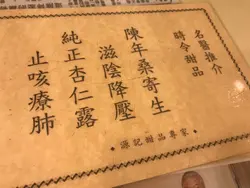 名醫推介
時令甜品
陳年桑寄生
滋陰降壓
純正杏仁露
止咳療肺
源記甜品專家